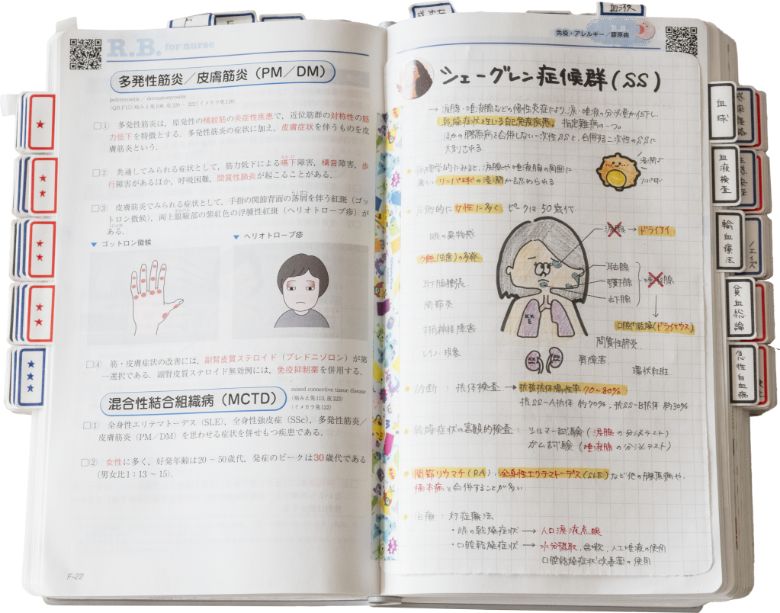 R.B. for nurse
多発性筋炎／皮膚筋炎（PM／DM）
□① 多発性筋炎は、原発性の横紋筋の炎症性疾患で、近位筋群の対称性の筋
力低下を特徴とする。多発性筋炎の症状に加え、皮膚症状を伴うものを皮
膚筋炎という。
□② 共通してみられる症状として、筋力低下による嚥下障害、構音障害、歩
行障害があるほか、呼吸困難、間質性肺炎が起こることがある。
□③ 皮膚筋炎でみられる症状として、手指の関節背面の落屑を伴う紅斑（ゴッ
トロン徴候）、両上眼瞼部の紫紅色の浮腫性紅斑（ヘリオトロープ疹）が
ある。
▼ ゴットロン徴候
▼ ヘリオトロープ疹
□④ 筋・皮膚症状の改善には、副腎皮質ステロイド（プレドニゾロン）が第
一選択である。副腎皮質ステロイド無効例には、免疫抑制薬を併用する。
混合性結合組織病（MCTD）
mixed connective tissue disease
□① 全身性エリテマトーデス（SLE）、全身性強皮症（SSc）、多発性筋炎／
皮膚筋炎（PM／DM）を思わせる症状を併せもつ疾患である。
□② 女性に多く、好発年齢は20～50歳代、発症のピークは30歳代である
（男女比1：13～15）。
F-22
免疫・アレルギー／膠原病
シェーグレン症候群（SS）
→ 涙腺・唾液腺などの慢性炎症により、涙・唾液の分泌量が低下し、
乾燥症状を生じる自己免疫疾患。指定難病の一つ。
ほかの膠原病を合併しない一次性SSと、合併する二次性のSSに
大別される
女性に多く ピークは50歳代
涙腺 → ドライアイ
耳下腺
顎下腺
舌下腺
唾液腺
口腔乾燥（ドライマウス）
関節炎
レイノー現象
間質性肺炎
腎障害
環状紅斑
診断：抗体検査 → 抗核抗体陽性率 70～80%
抗SS-A抗体 約70%、抗SS-B抗体 約30%
乾燥症状の客観的検査：シルマー試験（涙腺の分泌テスト）
ガム試験（唾液腺の分泌テスト）
関節リウマチ（RA）、全身性エリテマトーデス（SLE）など他の膠原病や、
橋本病と合併することが多い
治療：対症療法
・眼の乾燥症状 → 人工涙液点眼
・口腔乾燥症状 → 水分摂取、含嗽、人工唾液の使用
口腔乾燥症状改善薬の使用
血球
血液検査
輸血療法
貧血総論
急性白血病